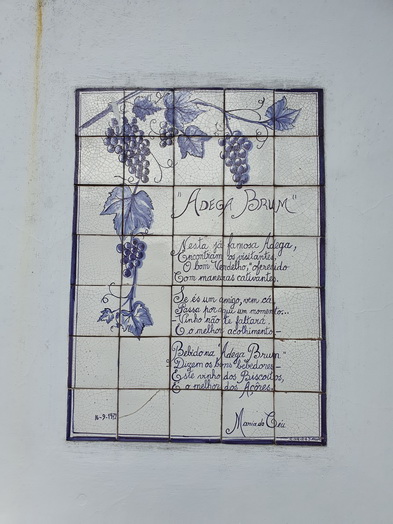 "ADEGA BRUM"
Nesta já famosa Adega,
Encontram os visitantes,
O bom Verdelho, oferecido
Com maneiras cativantes.
Se és um amigo, vem cá
Passa por aqui um momento...
Vinho não te faltará
E o melhor acolhimento -
Bebido na "Adega Brum"
Dizem os bons bebedores -
Este vinho dos Biscoitos,
É o melhor dos Açores.
Maria do Céu